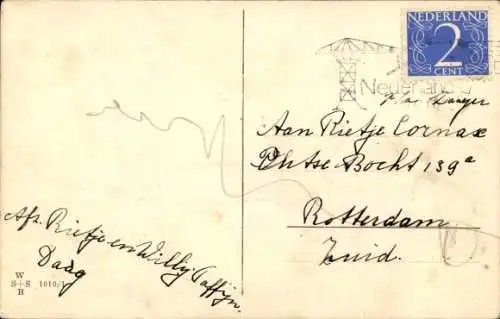 NEDERLAND
2
CENT
Nederland
Aan Rietje Cornax
Phtse Bocht 139a
Rotterdam
Zuid.
Afz. Rietje en Willy
Daag
W
S+S 1010/
B